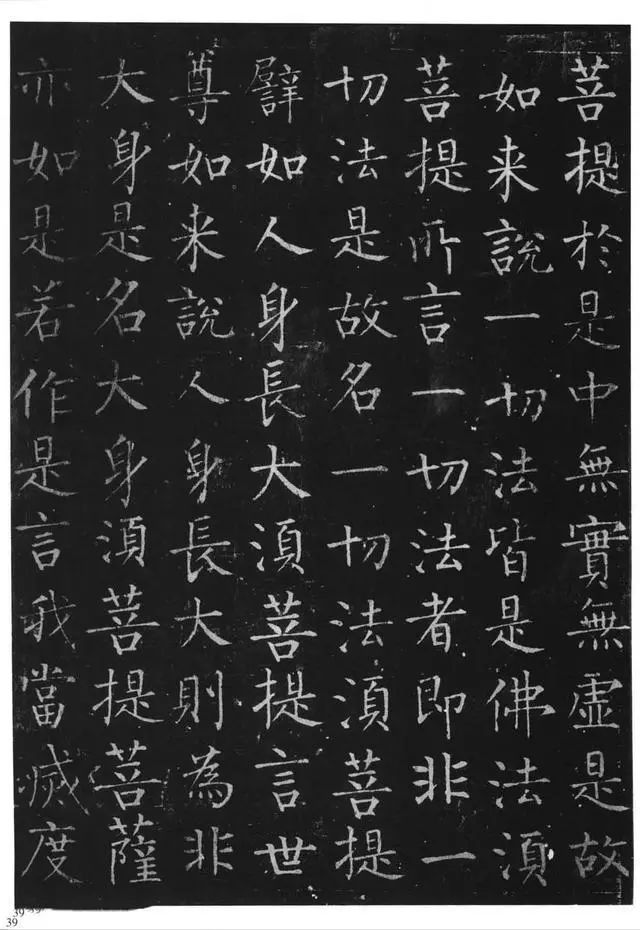 菩提於是中無實無虛是故
如来說一切法皆是佛法湏
菩提所言一切法者即非一
切法是故名一切法湏菩提
譬如人身長大湏菩提言世
尊如来說人身長大則為非
大身是名大身湏菩提菩薩
亦如是若作是言我當滅度
39
39
39